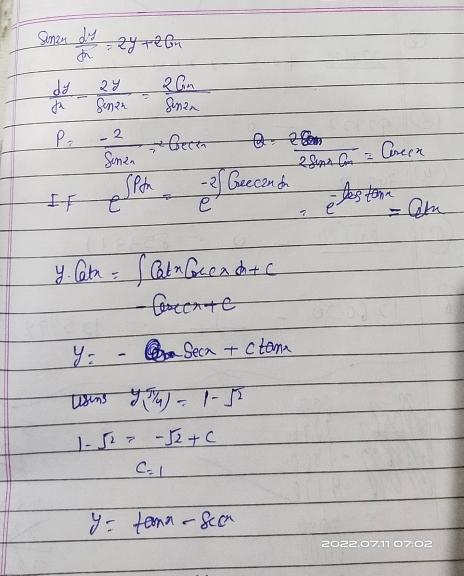 Sin2x dy/dx = 2y + 2Cosx
dy/dx - 2y/Sin2x = 2Cosx/Sin2x
P = -2/Sin2x = -2Cosec2x Q = 2Cosx/2SinxCosx = Cosecx
IF e^∫Pdx = e^-2∫Cosec2xdx = e^-log tanx = Cotx
y Cotx = ∫Cotx Cosecx dx + C
- Cosecx + C
y = - Secx + C tanx
using y(π/4) = 1-√2
1-√2 = -√2 + C
C=1
y = tanx - Secx
2022.07.11 07:02